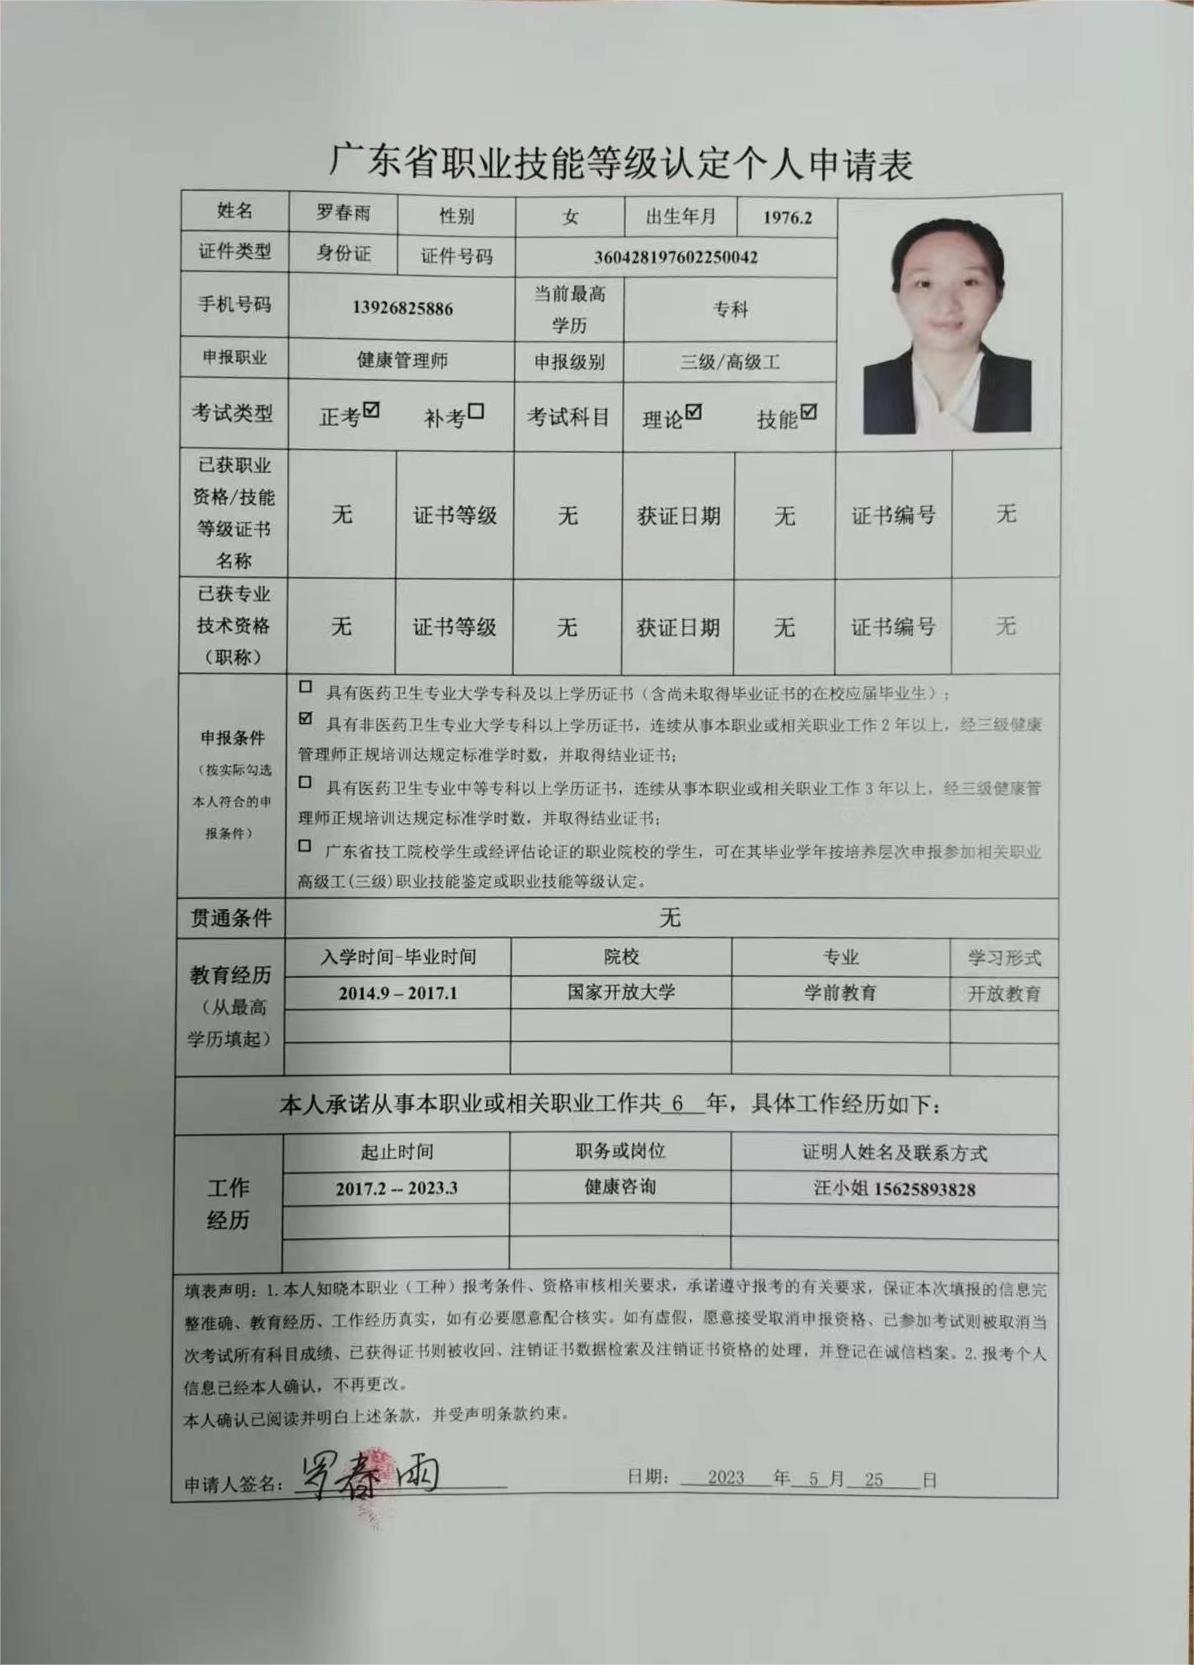 广东省职业技能等级认定个人申请表
姓名 罗春雨 性别 女 出生年月 1976.2
证件类型 身份证 证件号码 360428197602250042
手机号码 13926825886 当前最高学历 专科
申报职业 健康管理师 申报级别 三级/高级工
考试类型 正考☑ 补考☐ 考试科目 理论☑ 技能☑
已获职业
资格/技能
等级证书
名称
无 证书等级 无 获证日期 无 证书编号 无
已获专业
技术资格
（职称）
无 证书等级 无 获证日期 无 证书编号 无
申报条件
（按实际勾选
本人符合的申
报条件）
☐ 具有医药卫生专业大学专科及以上学历证书（含尚未取得毕业证书的在校应届毕业生）；
☑ 具有非医药卫生专业大学专科以上学历证书，连续从事本职业或相关职业工作2年以上，经三级健康
管理师正规培训达规定标准学时数，并取得结业证书；
☐ 具有医药卫生专业中等专科以上学历证书，连续从事本职业或相关职业工作3年以上，经三级健康管
理师正规培训达规定标准学时数，并取得结业证书；
☐ 广东省技工院校学生或经评估论证的职业院校的学生，可在其毕业学年按培养层次申报参加相关职业
高级工(三级)职业技能鉴定或职业技能等级认定。
贯通条件 无
教育经历
（从最高
学历填起）
入学时间-毕业时间 院校 专业 学习形式
2014.9 – 2017.1 国家开放大学 学前教育 开放教育
本人承诺从事本职业或相关职业工作共 6 年，具体工作经历如下：
工作
经历
起止时间 职务或岗位 证明人姓名及联系方式
2017.2 -- 2023.3 健康咨询 汪小姐 15625893828
填表声明：1.本人知晓本职业（工种）报考条件、资格审核相关要求，承诺遵守报考的有关要求，保证本次填报的信息完
整准确、教育经历、工作经历真实，如有必要愿意配合核实。如有虚假，愿意接受取消申报资格、已参加考试则被取消当
次考试所有科目成绩、已获得证书则被收回、注销证书数据检索及注销证书资格的处理，并登记在诚信档案。2.报考个人
信息已经本人确认，不再更改。
本人确认已阅读并明白上述条款，并受声明条款约束。
申请人签名：罗春雨 日期： 2023 年 5 月 25 日